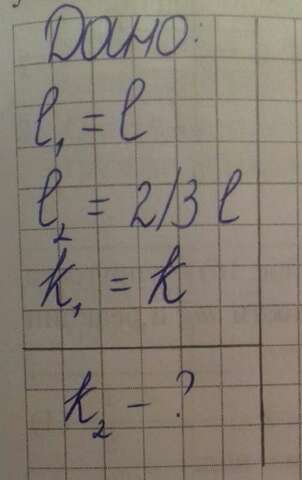 Дано:
l₁ = l
l₂ = 2/3 l
k₁ = k
k₂ - ?